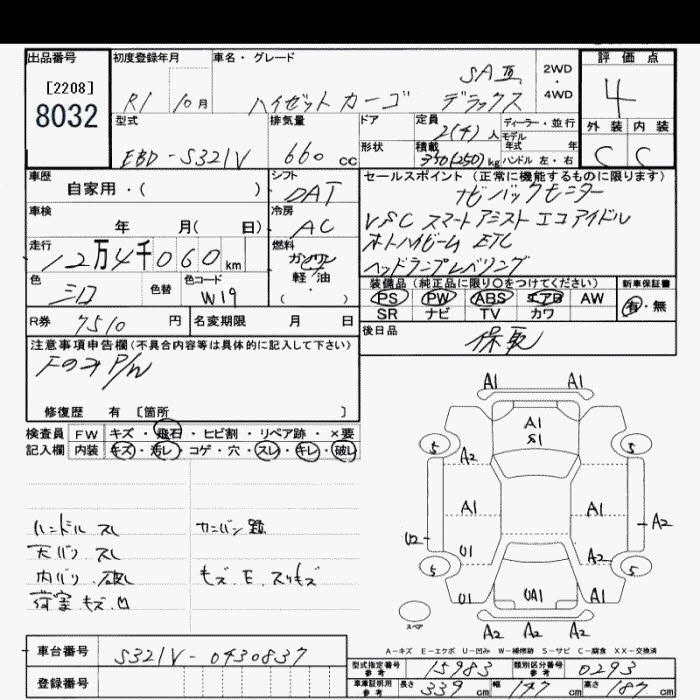 出品番号 初度登録年月 車名・グレード 評価点
[2208]
8032
R1 10月 ハイゼット カーゴ デラックス SAⅢ 2WD・4WD 4
型式 排気量 ドア 定員 2(4)人 ディーラー・並行 外装 内装
モデル年式 年式
EBD-S321V 660cc 形状 積載 350(250)kg ハンドル 左・右 C C
車歴 シフト セールスポイント(正常に機能するものに限ります)
自家用・( ) DAT ナビ バックモニター
車検 冷房 VSC スマートアシスト エコアイドル
年 月( 日) AC オートハイビーム ETC
走行 燃料 ヘッドランプレベリング
12万4千060km ガソリン 軽油・( )
色 色替 色コード 装備品(純正品に限り○をつけてください) 新車保証書
シロ W19 PS PW ABS エアB AW 有・無
SR ナビ TV カワ
R券 7510円 名変期限 月 日 後日品
保取
注意事項申告欄(不具合内容等は具体的に記入して下さい)
Fのみ P/W
修復歴 有 [箇所 ]
検査員 FW キズ・飛石・ヒビ割・リペア跡・×要
記入欄 内装 キズ・汚レ・コゲ・穴・スレ・キレ・破レ
ハンドル スレ カンバン跡
天バリ スレ
内バリ 破レ キズ・E・スリキズ
荷室 キズ・凹
A1 A1
A1
S1
5 5
A2
A1 A1
U2 A2
U1 A2
5 5
U1 UA1 A1
スペア
A2 A2 A2
A-キズ E-エクボ U-凹み W-補修跡 S-サビ C-腐食 XX-交換済
車台番号 S321V-0430837
型式指定番号 参考 15983 類別区分番号 参考 0293
登録番号
車庫証明用 参考 長さ 339cm 幅 147cm 高さ 187cm